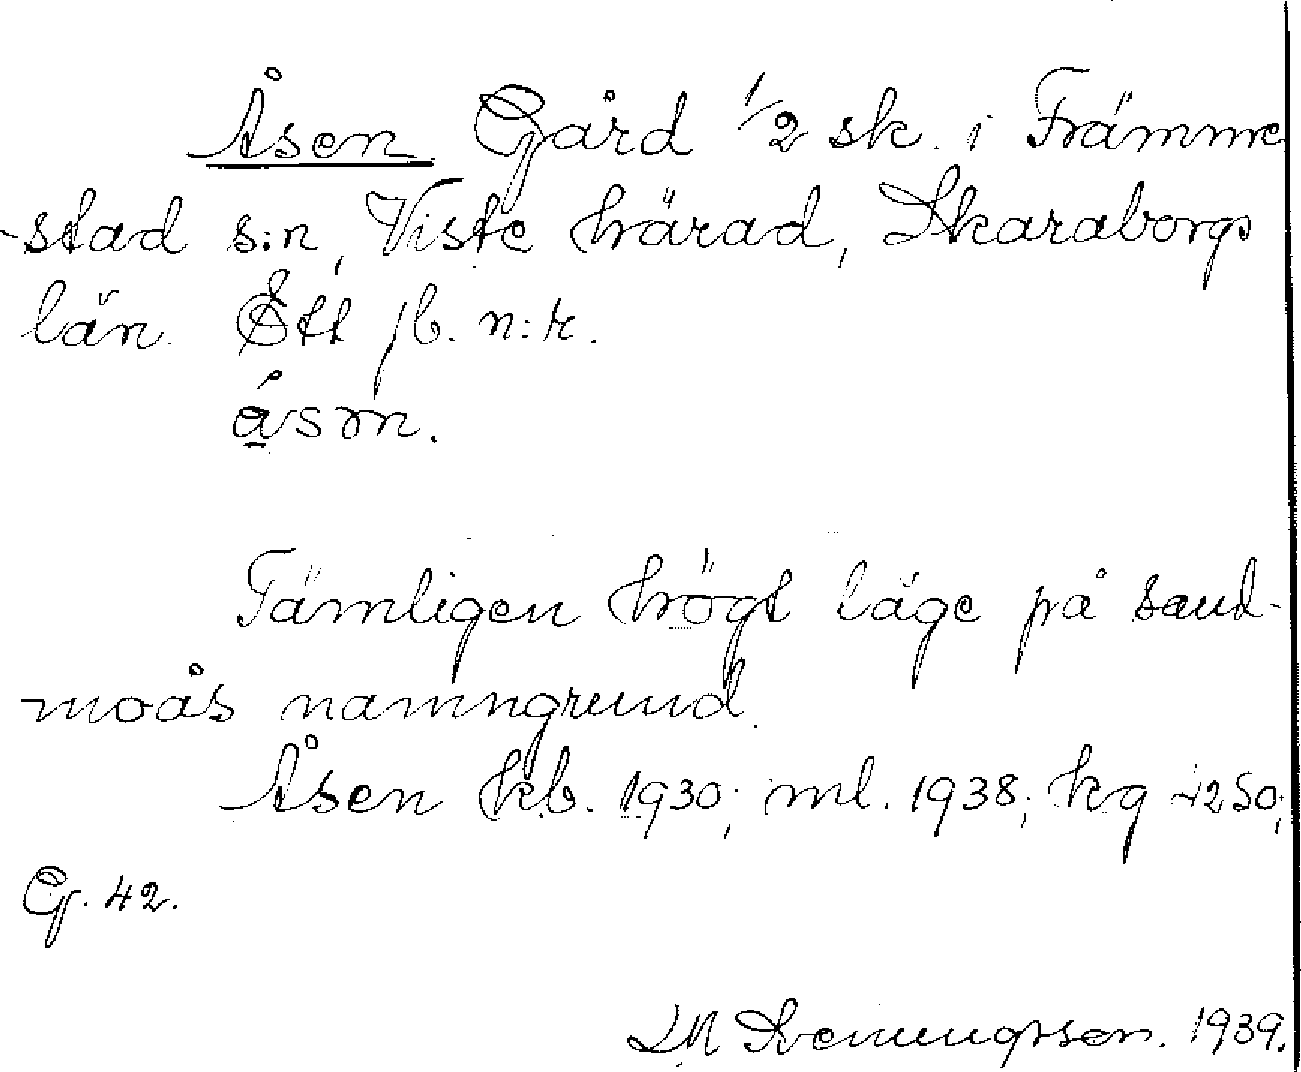 Åsen Gård 1/2 sk. i Främme
-stad s:n, Viste härad, Skaraborgs
län. Ett jb. n:r.
åsɷn.
Tämligen högt läge på sand-
moås namngrund.
Åsen kb. 1930; ml. 1938; kg 1250;
G. 42.
Svenungsson. 1939.